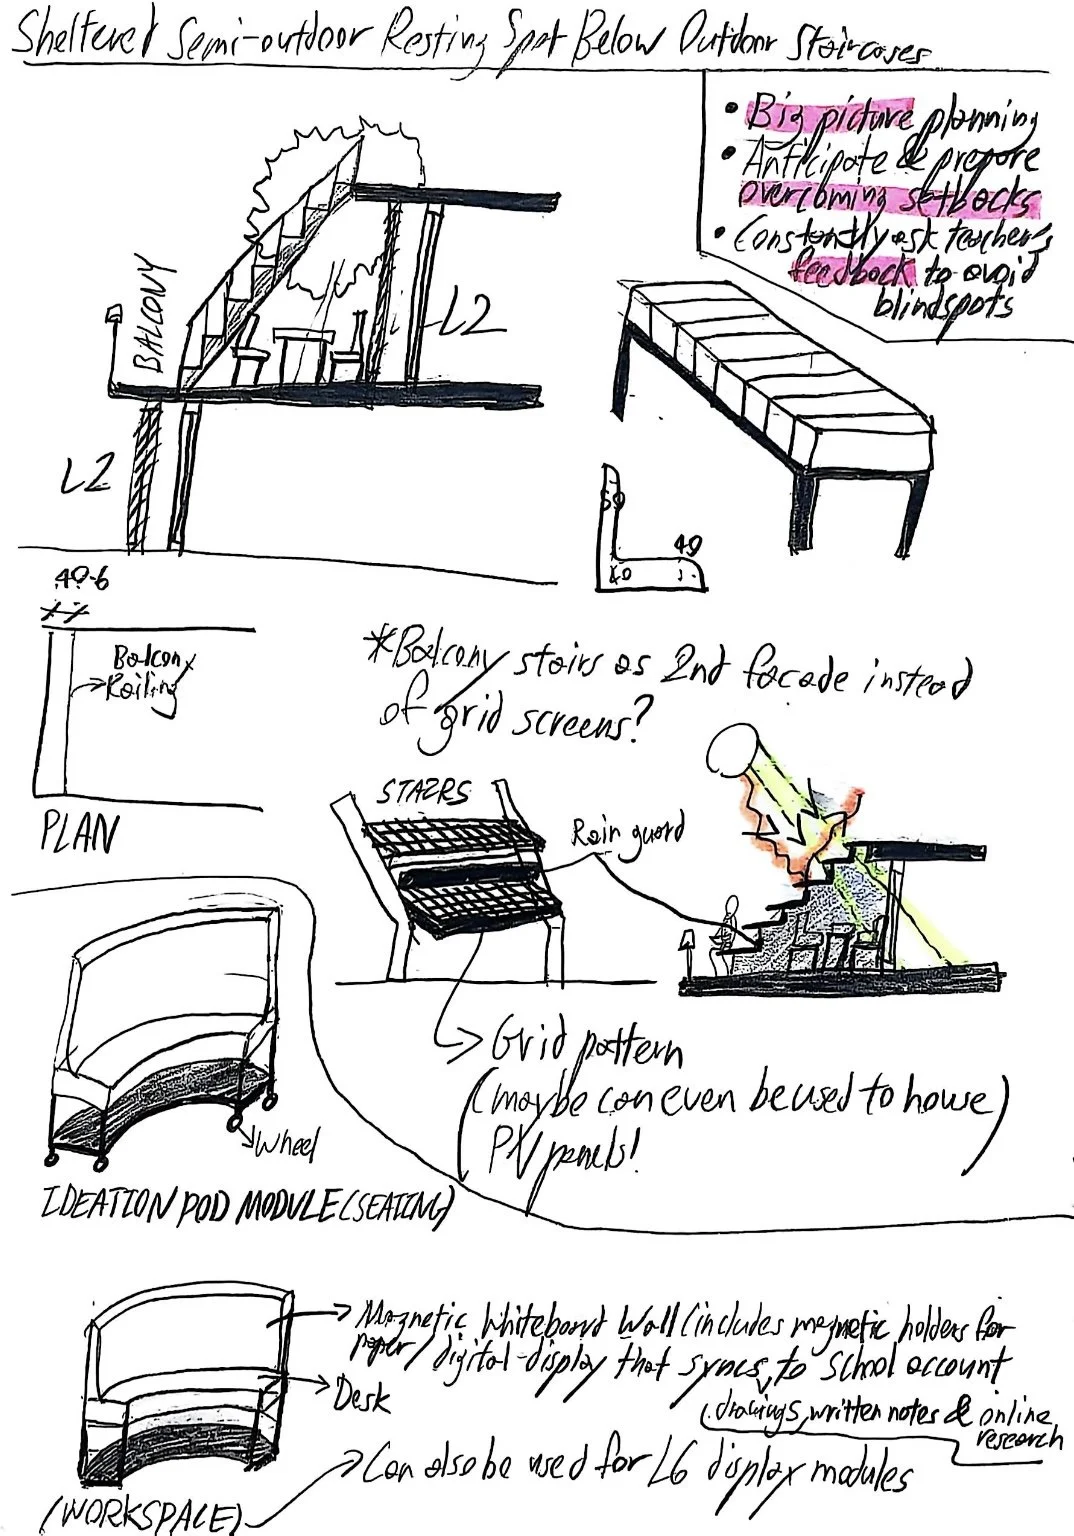 Sheltered Semi-outdoor Resting Spot Below Outdoor Staircases
• Big picture planning
• Anticipate & prepare
overcoming setbacks
• Constantly ask teacher's
feedback to avoid
blindspots
BALCONY
L2
L2
40
40
40-6
Balcony
Railing
PLAN
*Balcony stairs as 2nd facade instead
of grid screens?
STAIRS
Rain guard
Grid pattern
(maybe can even be used to house)
PV panels!
Wheel
IDEATION POD MODULE (SEATING)
Magnetic Whiteboard Wall (includes magnetic holders for
paper/digital display that syncs to school account
(drawings, written notes & online
research
Desk
Can also be used for L6 display modules
(WORKSPACE)